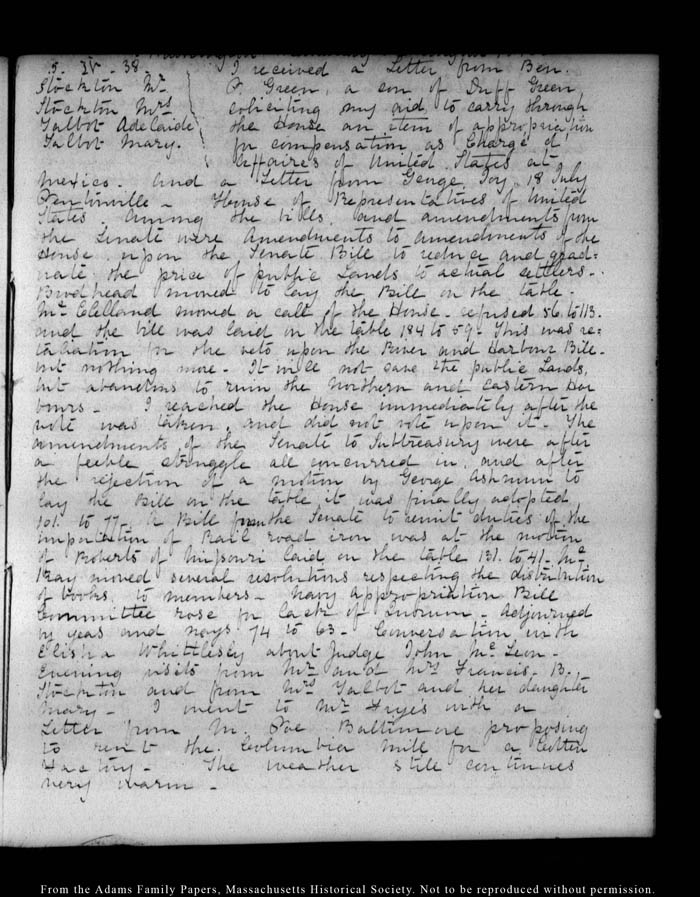 5. IV. 38.
Stockton Mr
Stockton Mrs
Talbot Adelaide
Talbot Mary.
I received a Letter from Ben.
P. Green, a son of Duff Green,
soliciting my aid to carry through
the House an item of appropriation
for compensation as Chargé d'
Affaires of United States at
Mexico. And a Letter from George Joy, 18 July
House of Representatives of United
States. Among the bills and amendments from
the Senate were Amendments to amendments of the
House, upon the Senate Bill to reduce and grad=
uate the price of public Lands to actual settlers.
Brodhead moved to lay the Bill on the table.
Mc Clelland moved a call of the House. refused 56 to 113.
and the bill was laid on the table 184 to 59. This was re=
taliation for the veto upon the River and Harbour Bill.
but nothing more. It will not save the public Lands,
but abandons to ruin the Northern and Eastern Har
bours. I reached the House immediately after the
vote was taken, and did not vote upon it. The
amendments of the Senate to Subtreasury were after
a feeble struggle all concurred in, and after
the rejection of a motion by George Ashmun to
lay the Bill on the table, it was finally adopted
101. to 77. A Bill from the Senate to remit duties of the
importation of Rail road iron was at the motion
of Roberts of Missouri laid on the table 131. to 41. Mc
Kay moved several resolutions respecting the distribution
of books, to members. Navy appropriation Bill
Committee rose for lack of Quorum. Adjourned
by yeas and nays. 74 to 63. Conversation with
Elisha Whittlesey about Judge John McLean.
Evening visits from Mr and Mrs Francis. B.
Stockton and from Mrs Talbot and her daughter
Mary. I went to Mr Hayes with a
Letter from M. Poe Baltimore proposing
to rent the Columbia Mill for a Cotton
Factory. The weather still continues
very warm.
From the Adams Family Papers, Massachusetts Historical Society. Not to be reproduced without permission.